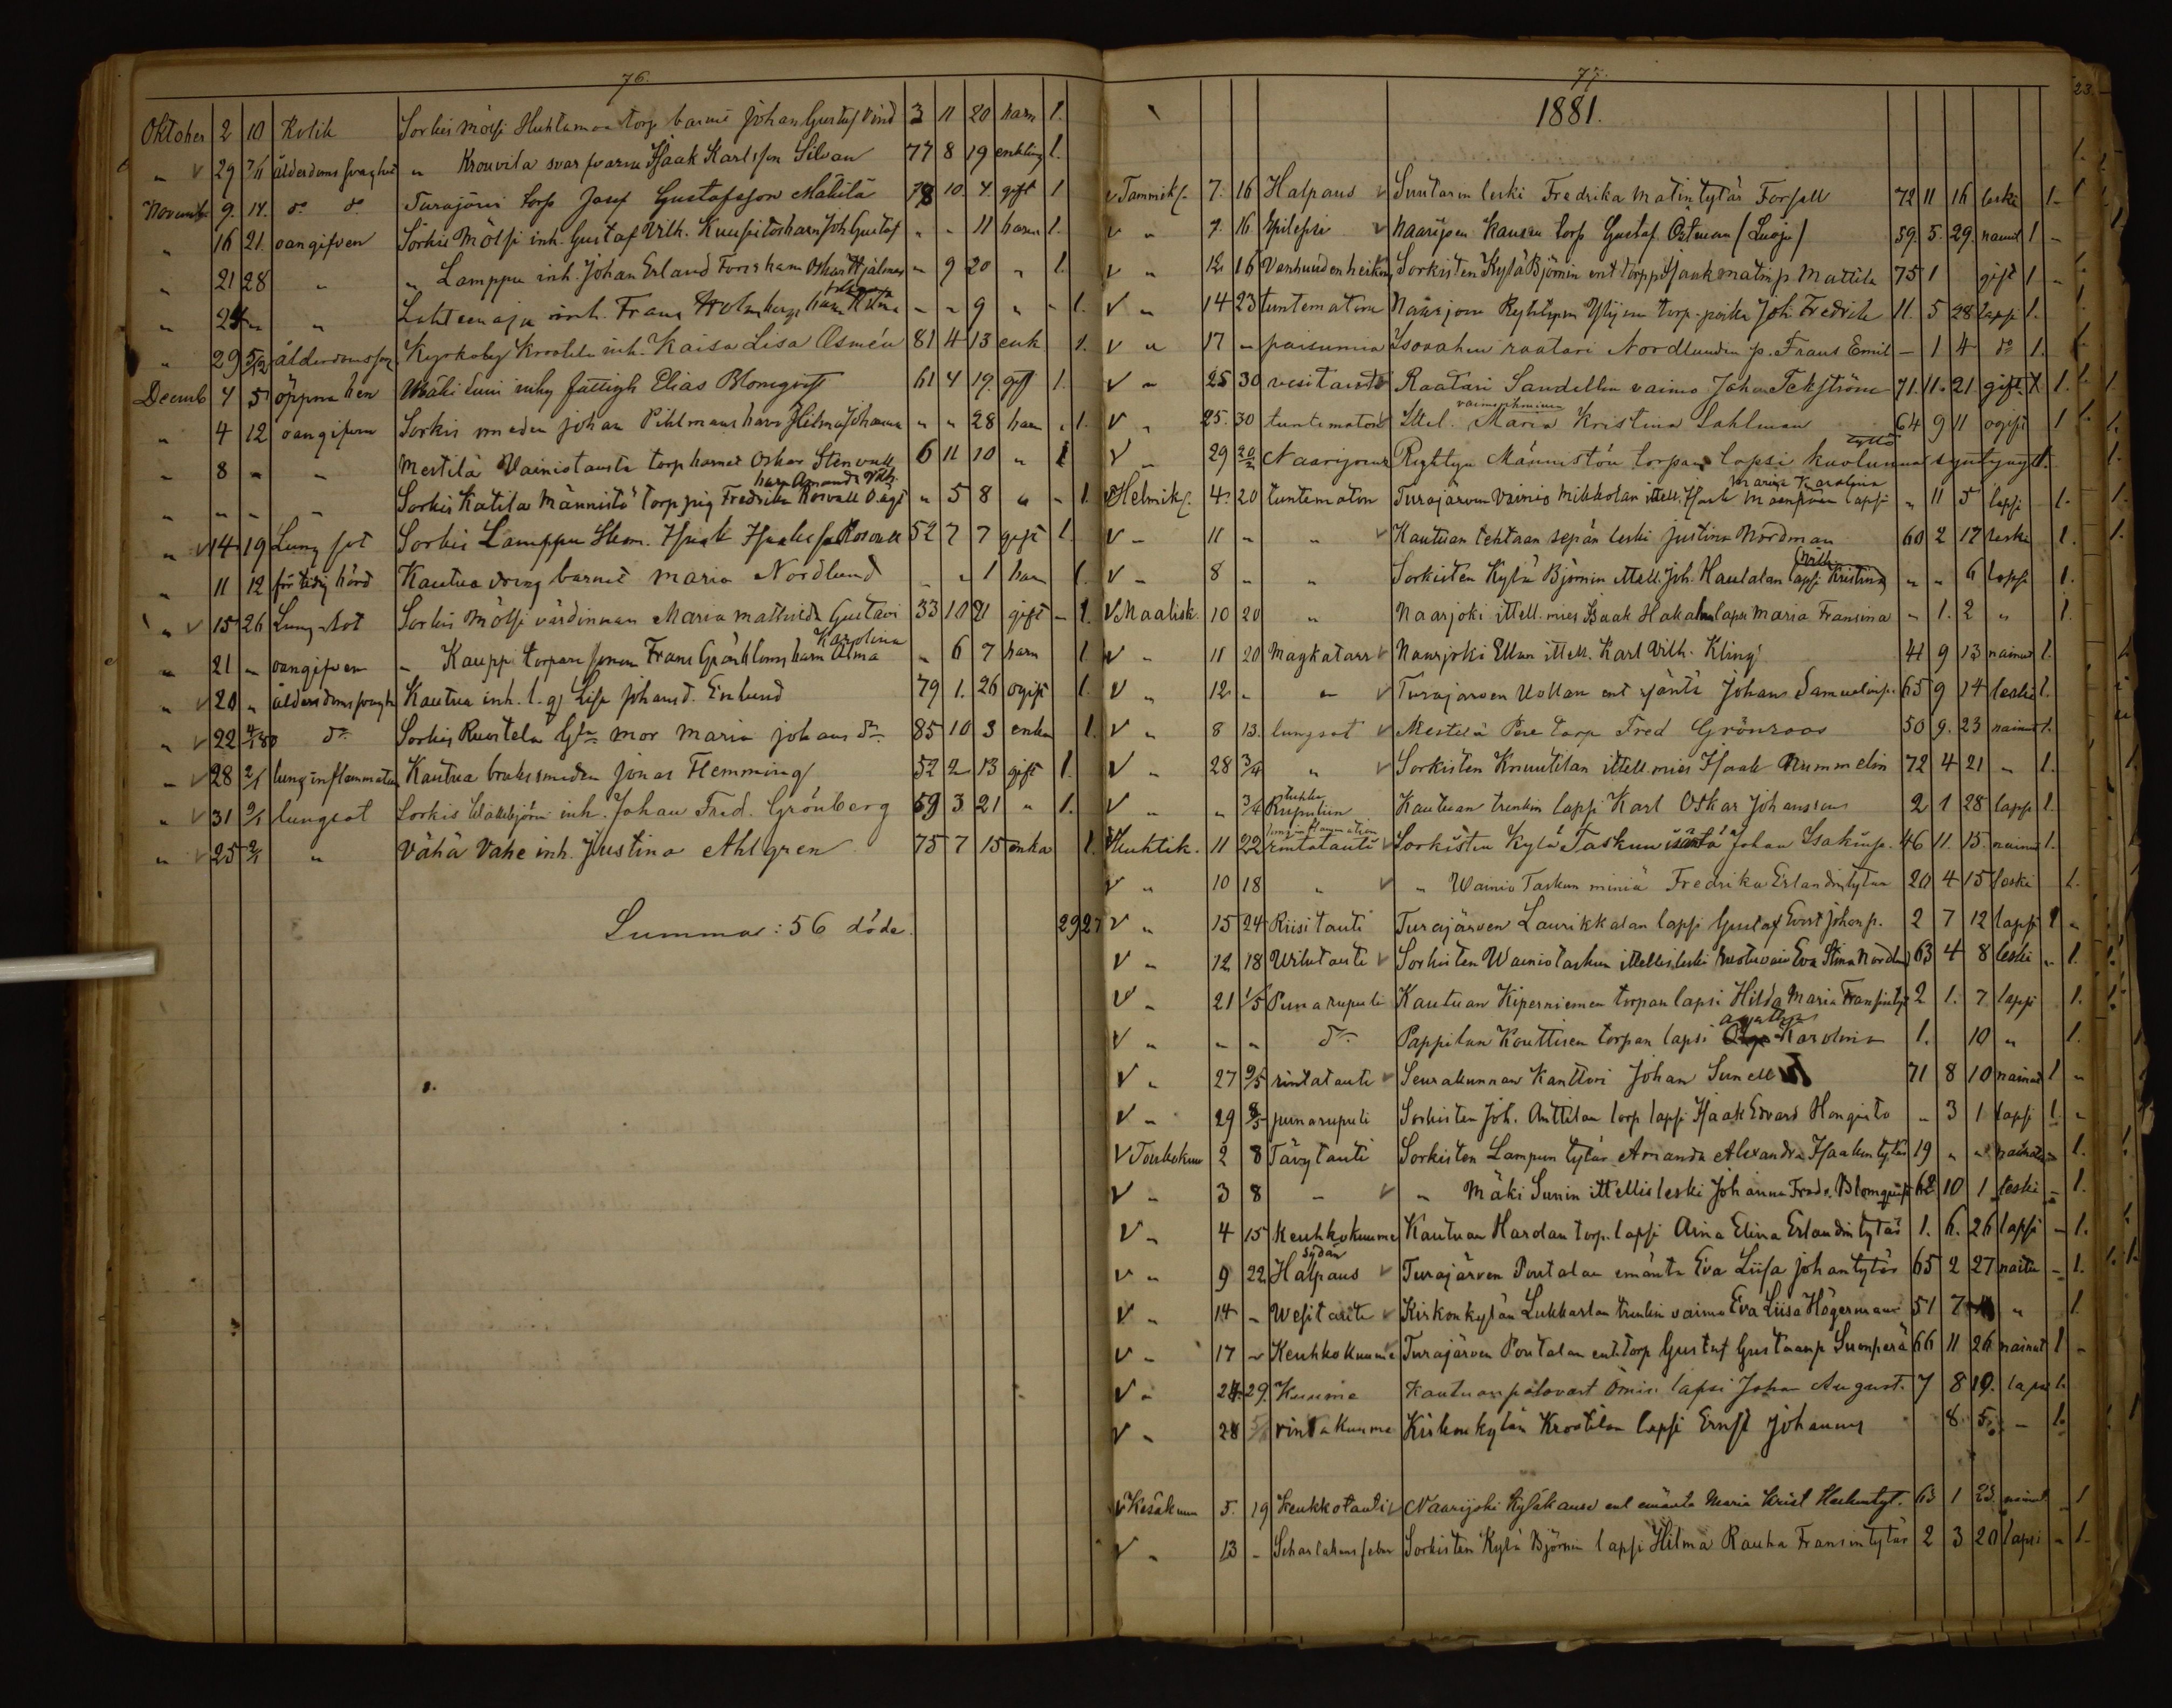 76.
Oktober 2 10 Kolik Sorkis Mölsi Huhtamaa torp barnet Johan Gustaf Lind 3 11 20 barn 1.
" 29 7/11 ålderdoms svaghet " Krouvila svärfvarne Isaak Karlsson Silvan 77 8 19 enkling 1.
November 9. 14. do do Turajärvi torp Josef Gustafsson Mäkilä 78 10. 4. gift 1
" 16 21. oangifven Sorkis Mölsi inh. Gustaf Vilh. Kuusistos barn Joh Gustaf " " 11 barn 1.
" 21 28 " " Lamppu inh. Johan Erland Fors barn Oskar Hjalmar " 9 20 " 1.
" 24 " " Lehtsenoja inh. Frans Holmbergs barn " " 9 " " 1.
" 29 5/12 ålderdomssv Kyrkoby Krootila inh. Kaisa Lisa Osmén 81 4 13 enk 1.
Decemb 4 5 öppna ben Mäki Suni inhy fattigh Elias Blomqvist 61 4 19. gift 1.
" 4 12 oangifven Sorkis smeden Johan Pihlmans barn Hilma Johanna " " 28 barn " 1.
" 8 " " Mestilä Vainiotausta torp barnet Oskar Stenvall 6 11 10 " 1
" " " " Sorkis Katila Männistö torp pig Fredrika Rosvall oägt barn Amanda Vilh. " 5 8 " " 1.
" 14 19 Lung sot Sorkis Lamppu Hem. Isaak Isaksson Rosvall 52 7 7 gift 1.
" 11 12 för tidig börd Kautua dräng barnet Maria Nordlund " " 1 barn 1.
" 15 26 Lung sot Sorkis Mölsi värdinnan Maria Mathilda Gustavi 33 10 21 gift " 1.
" 21 " oangifven " Kauppi torpare sonen Frans Grönholms barn Alma Karolina " 6 7 barn 1
" 20 " ålderdoms svagh Kautua inh. l. qj Lisa Johansd. Enlund 79 1. 26 ogift 1.
" 22 do Sorkis Ruustela Gla mor Maria Johans dr 85 10 3 enka 1.
" 28 2/1 lunginflammation Kautua bruks smeden Jonas Flemming 52 2 13 gift 1.
" 31 9/1 lungsot Sorkis Wällibjörni inh. Johan Fred. Grönberg 69 3 21 " 1.
" 25 2/1 " Vähä Vahe inh. Justina Ahlgren 75 7 15 enka 1.
Summa: 56 döda. 29 27
77.
1881.
Tammik. 7. 16 Halpaus Suutarin leski Fredrika Matintytär Forsell 72 11 16 leski 1.
" 7. 16 Epilepsi Naarijoen Kausen torp Gustaf Ostman (Luoja) 59. 5. 29. nainut 1 "
" 12 16 Vanhuuden heikon Sorkisten Kylä Björnin ent torppa Isaak Matinp. Mattila 75 1 gift 1 "
" 14 23 tuntematon Naarjoen Ryhtyyn Ylijoen torp. poika Joh. Fredrik 11. 5 28 lapsi 1.
" 17 " paisumia Isovahen raatari Nordlundin p. Frans Emil " 1 4 do 1.
" 25 30 vesitauti Raatari Sandellin vaimo Johanna Tekström 71. 11. 21 gift 1.
" 25. 30 tuntematon Ittel. vaimoihminen Maria Kristina Sahlman 64 9 11 ogift 1
" 29 20/2 Naarjoen Ryhtyn Männistön torpan lapsi kuoluna syntynyt tyttö 1.
Helmik. 4. 20 tuntematon Turajärven Vainio Mikkolan ittell. Isaak Maenpään lapsi Maria Karolina " 11 5 lapsi 1.
" 11 " " Kautuan tehtaan sepän leski Justina Nordman 60 2 17 leski 1.
" 8 " " Sorkisten Kylä Björnin ittell. Joh. Haulalan lapsi Vilh. Kristina " " 6 lapsi 1.
Maalisk. 10 20 " Naarjoki ittell. mies Isaak Hakalan lapsi Maria Fransina " 1. 2 " 1.
" 11 20 Magkatarr Naarjoki Ellun ittell. Karl Vilh. Kling 41 9 13 nainut 1.
" 12. " " Turajärven Uollan ent isäntä Johan Samuelinp. 65 9 14 leski 1.
" 8 13. lungsot Mestilä Pere torp Fred Grönroos 50 9. 23 nainut 1.
" 28 3/4 " Sorkisten Knuutilan ittell. mies Isaak Nummelin 72 4 21 " 1.
" " 3/4 tuhka Rupuliin Kautuan trenkin lapsi Karl Oskar Johansson 2 1 28 lapsi 1.
Huhtik. 11 22 lunginflammation rintatauti Sorkisten Kylä Taskun isäntä Johan Isakinp. 46 11. 15. nainut 1.
" 10 18 " " Wainio Taskun miniä Fredrika Erlandintytär 20 4 15 leski 1.
" 15 24 Riisitauti Turajärven Laurikkalan lapsi Gustaf Evert Johanp. 2 7 12 lapsi 1 "
" 12 18 Wilutauti Sorkisten Wainiotaskun ittellis leski Eva Stina Nordlund 63 4 8 leski " 1.
" 21 1/5 Punarupuli Kautuan Kiperniemen torpan lapsi Hilda Maria Fransintyt 2 1. 7 lapsi 1.
" " " do Pappilan Kouttisen torpan lapsi Agatha Karolina 1. 10 " 1.
" 27 9/5 rintatauti Seurakunnan Kanttori Johan Sunell 71 8 10 nainut 1 "
" 29 8/5 punarupuli Sorkisten Joh. Anttilan torp lapsi Isaak Edvard Hongisto " 3 1 lapsi 1. "
Toukokuu 2 8 Tävytauti Sorkisten Lampun tytär Amanda Alexandra Isaakintytär 19 " " naimaton 1.
" 3 8 " " Mäki Sunin ittellis leski Johanna Fredr. Blomqvist 62 10 1 leski " 1.
" 4 15 Keuhkokuume Kautuan Harolan torp. lapsi Aina Elina Erlandintytär 1. 6. 26 lapsi " 1.
" 9 22. sydän Halpaus Turajärven Pontalan emäntä Eva Liisa Johantytär 65 2 27 naitu " 1.
" 14 " Wesitauti Kirkonkylän Lukkarlan trenkin vaimo Eva Liisa Högerman 51 7 " 1.
" 17 " Keuhkokuume Turajärven Pontalan ent. torp Gustaf Gustaanp Suonperä 66 11 26 nainut 1 "
" 24. 29. Kuume Kautuan palovart Ömin lapsi Johan August. 7 8 19. lapsi 1.
" 28 rintakuume Kirkonkylän Krootilan lapsi Ernst Johannes 8 5 " 1.
Kesäkuu 5. 19 Keuhkotauti Naarijoki Kyläkausen ent emäntä Maria Krist Heikintyt. 63 1 23. nainut 1
" 13 " Scharlakansfeber Sorkisten Kylä Björnin lapsi Hilma Rauha Fransintytär 2 3 20 lapsi " 1.
23.